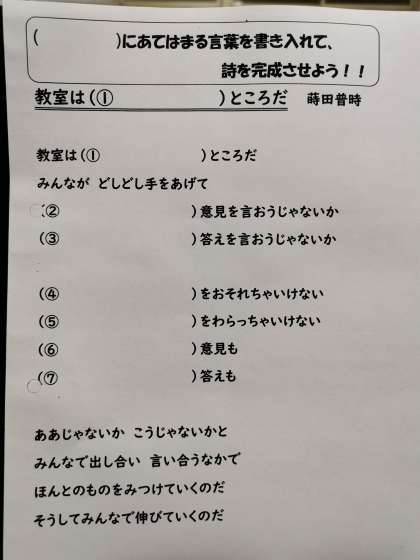 (　　　　　　)にあてはまる言葉を書き入れて、
詩を完成させよう！！
教室は(①　　　　　　)ところだ　蒔田晋時
教室は(①　　　　　　)ところだ
みんなが　どしどし手をあげて
(②　　　　　　)意見を言おうじゃないか
(③　　　　　　)答えを言おうじゃないか
(④　　　　　　)をおそれちゃいけない
(⑤　　　　　　)をわらっちゃいけない
(⑥　　　　　　)意見も
(⑦　　　　　　)答えも
ああじゃないか　こうじゃないかと
みんなで出し合い　言い合うなかで
ほんとのものをみつけていくのだ
そうしてみんなで伸びていくのだ